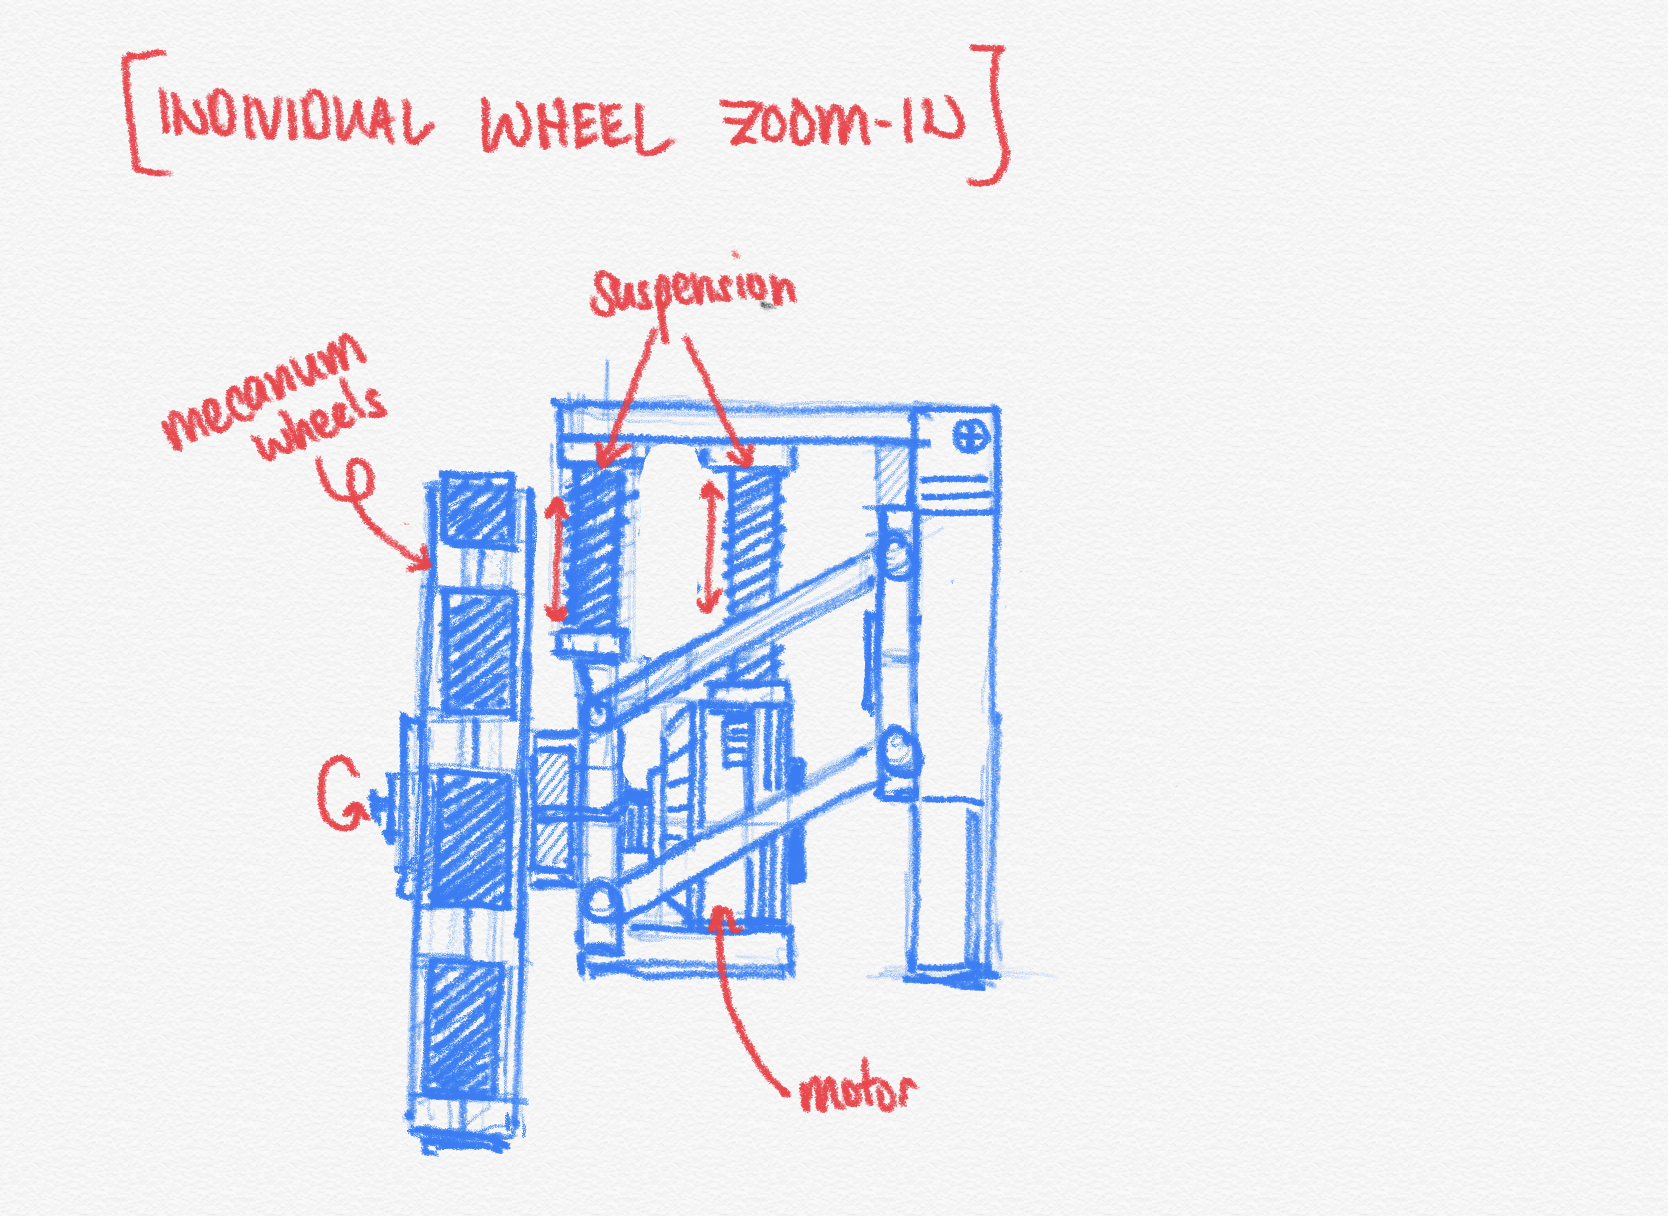 [INDIVIDUAL WHEEL ZOOM-IN]
suspension
mecanum
wheels
motor